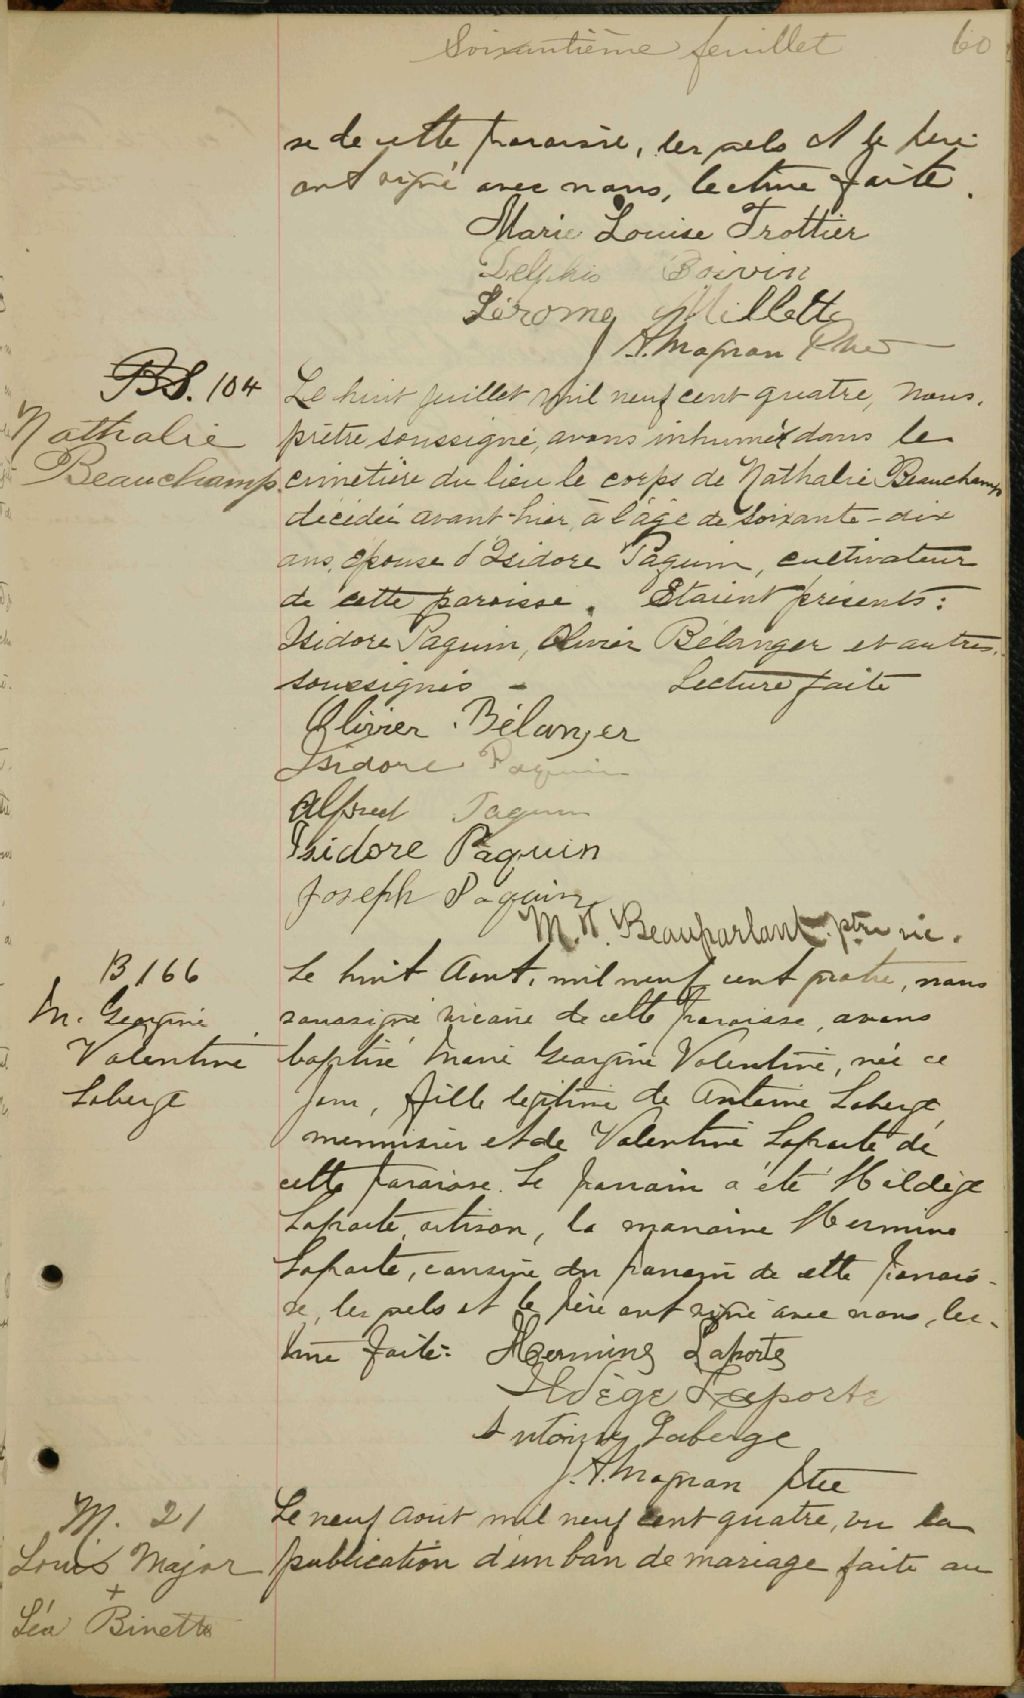 Soixantième feuillet 60
se de cette paroisse, les quels et le père
ont signé avec nous, lecture faite.
Marie Louise Trottier
Delphis Boivin
Jérome Millette
A. Magnan Ptre
BS. 104
Nathalie
Beauchamp
Le huit juillet mil neuf cent quatre, nous,
prêtre soussigné, avons inhumé dans le
cimetière du lieu le corps de Nathalie Beauchamp
décédée avant-hier, à l'âge de soixante-dix
ans, épouse d'Isidore Paquin, cultivateur
de cette paroisse. Etaient présents:
Isidore Paquin, Olivier Bélanger et autres
soussignés - Lecture faite
Olivier Bélanger
Isidore Paquin
Alfred Paquin
Isidore Paquin
Joseph Paquin
M. A. Beauparlant ptre vic.
B 166
M. Georgine
Valentine
Laberge
Le huit Aout, mil neuf cent quatre, nous
soussigné vicaire de cette Paroisse, avons
baptisé Marie Georgine Valentine, née ce
jour, fille légitime de Antoine Laberge,
menuisier et de Valentine Laporte de
cette paroisse. Le parrain a été Hildège
Laporte, artisan, la marraine Hermine
Laporte, cousine du parrain de cette Parois-
se, les quels et le père ont signé avec nous, lec-
ture faite: Hermine Laporte
Ildège Laporte
Antoine Laberge
J. A. Magnan Ptre
M. 21
Louis Major
+
Léa Binette
Le neuf Aout mil neuf cent quatre, vu la
publication d'un ban de mariage faite au